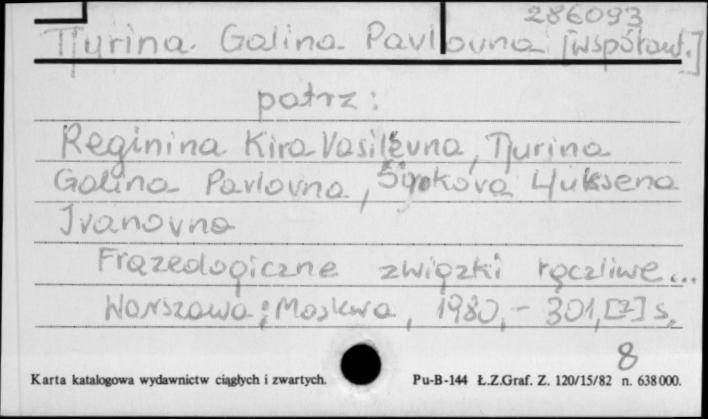 286093
Tjurina Galina Pavlovna [współaut.]
patrz:
Reginina Kira Vasilevna, Tjurina
Galina Pavlovna, Širokova Ljuksena
Ivanovna
Frazeologiczne związki łączliwe...
Warszawa; Moskwa, 1980, - 301, [2] s.
8
Karta katalogowa wydawnictw ciągłych i zwartych. Pu-B-144 Ł.Z.Graf. Z. 120/15/82 n. 638000.